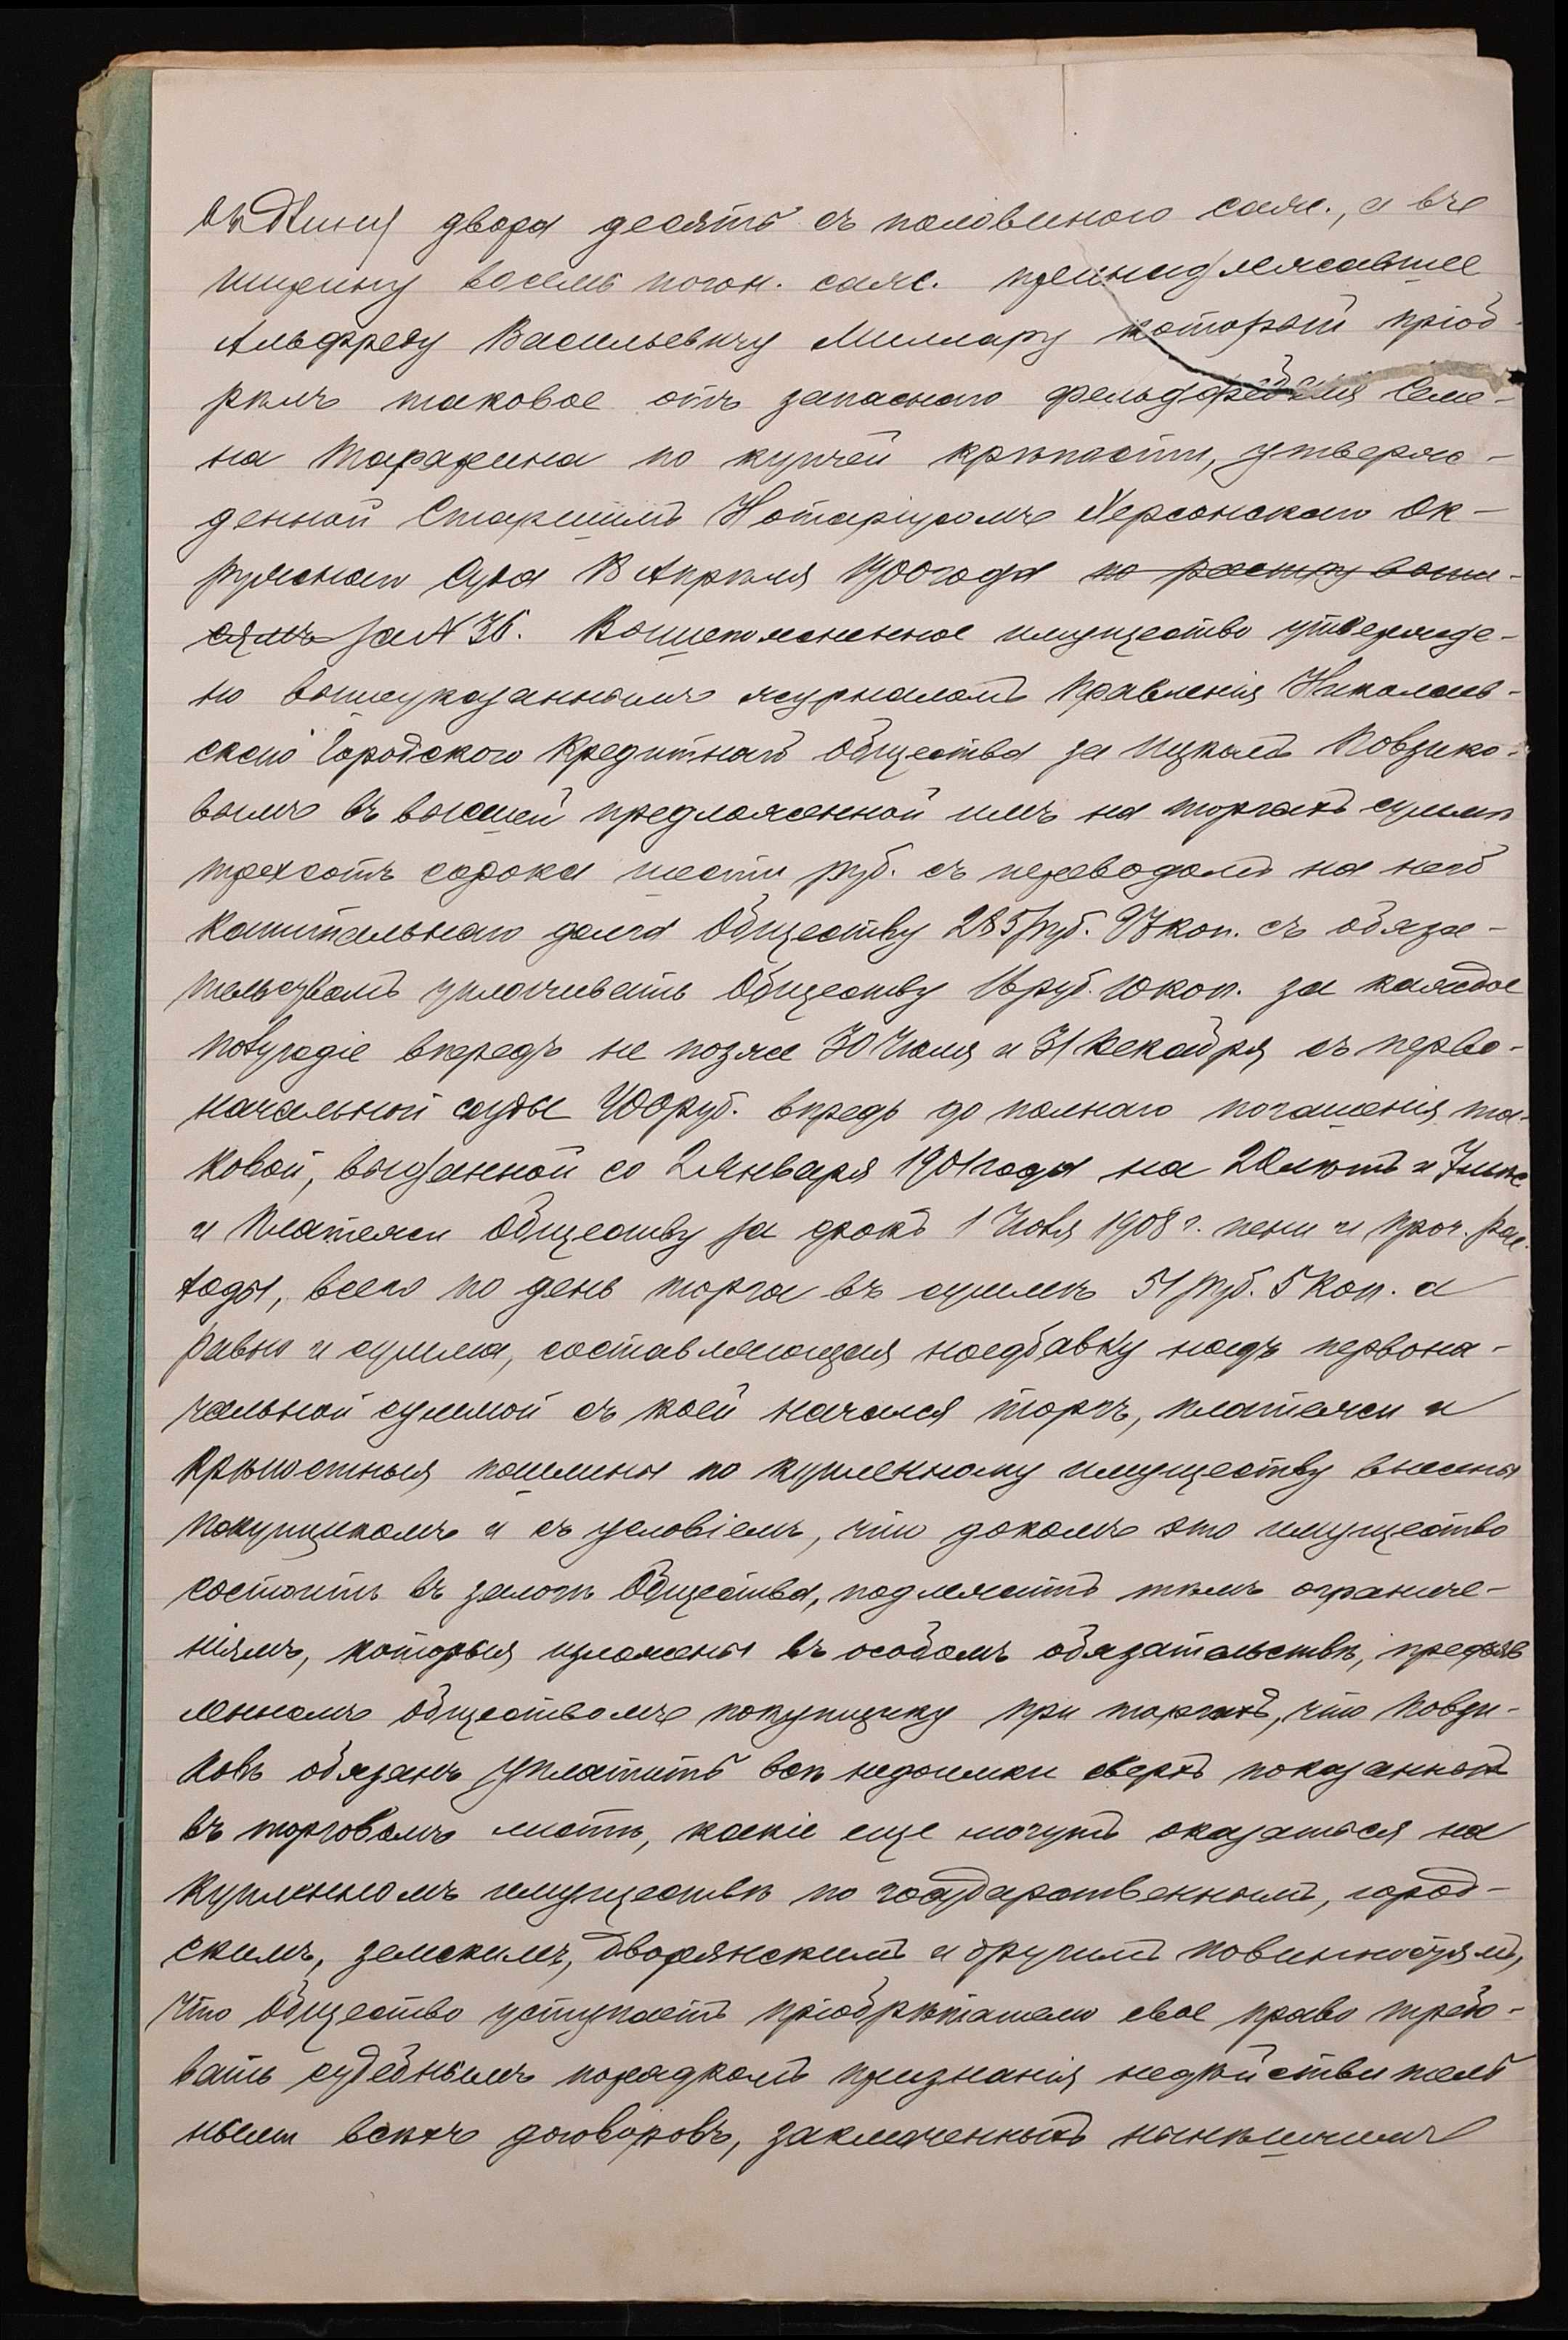 въ длину двора десять съ половиною саж., а въ
ширину восемь погон. саж. принадлежавшее
Альфреду Васильевичу Миллару который пріоб-
рѣлъ таковое отъ запаснаго фельдфебеля Семе-
на Тараpина по купчей крѣпости, утверж-
денной Старшимъ Нотаріусомъ Херсонскаго Ок-
ружнаго Суда 18 Апрѣля 1900 года по
за № 36. Вышеизложенное имущество утвержде-
но вышеуказаннымъ журналомъ Правленія Николаев-
скаго Городского Кредитнаго Общества за Ицкомъ Повзико-
вымъ въ высшей предложенной имъ на торгахъ суммѣ
трехсотъ сорока шести руб. съ переводомъ на него
капитальнаго долга Обществу 285 руб. 97 коп. съ обяза-
тельствомъ уплачивать Обществу 16 руб. 10 коп. за каждое
полугодіе впередъ не позже 30 Іюня и 31 Декабря съ перво-
начальной ссуды 400 руб. впредь до полнаго погашенія та-
ковой, выданной со 2 Января 1901 года на 20 лѣтъ и 7 мѣс
и платежи Обществу за срокъ 1 Іюля 1908 г. пени и проч. рас
ходы, всего по день торга въ суммѣ 51 руб. 5 коп. а
равно и сумма, составляющая надбавку надъ первона-
чальной суммой съ коей начался торгъ, платежи и
крѣпостныя пошлины по купленному имуществу внесены
покупщикомъ и съ условіемъ, что доколѣ это имущество
состоитъ въ залогѣ Общества, подлежитъ тѣмъ ограниче-
ніямъ, которыя изложены въ особомъ обязательствѣ, предъяв
ленномъ Обществомъ покупщику при торгахъ, что Повзи-
ковъ обязанъ уплатить всѣ недоимки сверхъ показанной
въ торговомъ листѣ, какіе еще могутъ оказаться на
купленномъ имуществѣ по государственнымъ, город-
скимъ, земскимъ, дворянскимъ и другимъ повинностямъ,
что Общество уступаетъ пріобрѣтателю свое право требо-
вать судебнымъ порядкомъ признанія недѣйствитель
ными всѣхъ договоровъ, заключенныхъ нынѣшнимъ